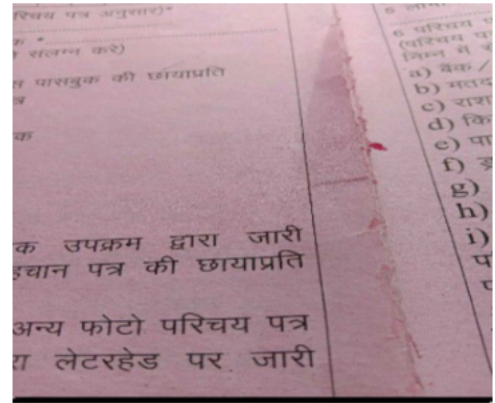 परिचय पत्र अनुसार)*
क *
संलग्न करे)
पासबुक की छायाप्रति
त्र
क
क उपक्रम द्वारा जारी
हचान पत्र की छायाप्रति
अन्य फोटो परिचय पत्र
रा लेटरहेड पर जारी
5
6 परिचय प
(परिचय पत
निम्न में स
a) बैंक /
b) मतद
c) राश
d) कि
e) पा
f) ड्र
g)
h)
i)
प